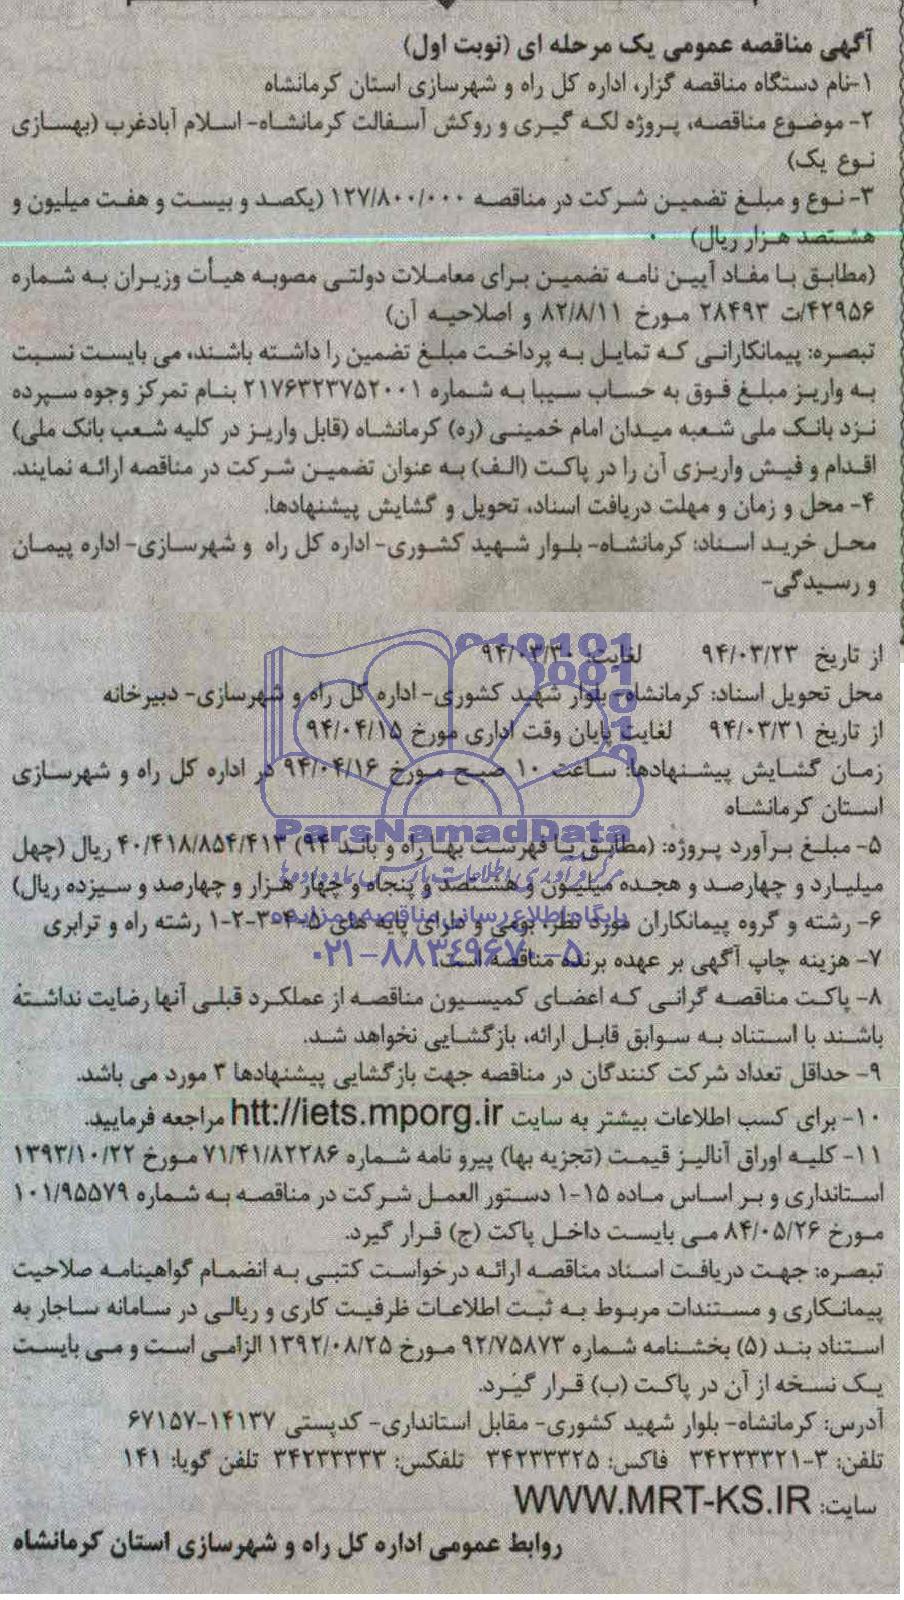 آگهی مناقصه عمومی یک مرحله ای (نوبت اول)
۱-نام دستگاه مناقصه گزار، اداره کل راه و شهرسازی استان کرمانشاه
۲- موضوع مناقصه، پروژه لکه گیری و روکش آسفالت کرمانشاه- اسلام آبادغرب (بهسازی
نوع یک)
۳- نوع و مبلغ تضمین شرکت در مناقصه ۱۲۷/۸۰۰/۰۰۰ (یکصد و بیست و هفت میلیون و
هشتصد هزار ریال)
(مطابق با مفاد آیین نامه تضمین برای معاملات دولتی مصوبه هیأت وزیران به شماره
۴۲۹۵۶/ت ۲۸۴۹۳ مورخ ۸۲/۸/۱۱ و اصلاحیه آن)
تبصره: پیمانکارانی که تمایل به پرداخت مبلغ تضمین را داشته باشند، می بایست نسبت
به واریز مبلغ فوق به حساب سیبا به شماره ۲۱۷۶۳۲۳۷۵۲۰۰۱ بنام تمرکز وجوه سپرده
نزد بانک ملی شعبه میدان امام خمینی (ره) کرمانشاه (قابل واریز در کلیه شعب بانک ملی)
اقدام و فیش واریزی آن را در پاکت (الف) به عنوان تضمین شرکت در مناقصه ارائه نمایند.
۴- محل و زمان و مهلت دریافت اسناد، تحویل و گشایش پیشنهادها.
محل خرید اسناد: کرمانشاه- بلوار شهید کشوری- اداره کل راه و شهرسازی- اداره پیمان
و رسیدگی-
از تاریخ ۹۴/۰۳/۲۳ لغایت: ۹۴/۰۳/۳۰
محل تحویل اسناد: کرمانشاه- بلوار شهید کشوری- اداره کل راه و شهرسازی- دبیرخانه
از تاریخ ۹۴/۰۳/۳۱ لغایت پایان وقت اداری مورخ ۹۴/۰۴/۱۵
زمان گشایش پیشنهادها: ساعت ۱۰ صبح مورخ ۹۴/۰۴/۱۶ در اداره کل راه و شهرسازی
استان کرمانشاه
ParsNamadData
۵- مبلغ برآورد پروژه: (مطابق با فهرست بها راه و باند ۹۴) ۴۰/۴۱۸/۸۵۴/۴۱۳ ریال (چهل
مرکز فرآوری اطلاعات پارس نماد داده‌ها
میلیارد و چهارصد و هجده میلیون و هشتصد و پنجاه و چهار هزار و چهارصد و سیزده ریال)
پایگاه اطلاع رسانی مناقصه و مزایده
۶- رشته و گروه پیمانکاران مورد نظر، بومی و دارای پایه های ۵-۴-۳-۲-۱ رشته راه و ترابری
۰۲۱-۸۸۳۴۹۶۷۰-۵
۷- هزینه چاپ آگهی بر عهده برنده مناقصه است.
۸- پاکت مناقصه گرانی که اعضای کمیسیون مناقصه از عملکرد قبلی آنها رضایت نداشته
باشند با استناد به سوابق قابل ارائه، بازگشایی نخواهد شد.
۹- حداقل تعداد شرکت کنندگان در مناقصه جهت بازگشایی پیشنهادها ۳ مورد می باشد.
۱۰- برای کسب اطلاعات بیشتر به سایت htt://iets.mporg.ir مراجعه فرمایید.
۱۱- کلیه اوراق آنالیز قیمت (تجزیه بها) پیرو نامه شماره ۷۱/۴۱/۸۲۲۸۶ مورخ ۱۳۹۳/۱۰/۲۲
استانداری و بر اساس ماده ۱۵-۱ دستور العمل شرکت در مناقصه به شماره ۱۰۱/۹۵۵۷۹
مورخ ۸۴/۰۵/۲۶ می بایست داخل پاکت (ج) قرار گیرد.
تبصره: جهت دریافت اسناد مناقصه ارائه درخواست کتبی به انضمام گواهینامه صلاحیت
پیمانکاری و مستندات مربوط به ثبت اطلاعات ظرفیت کاری و ریالی در سامانه ساجار به
استناد بند (۵) بخشنامه شماره ۹۲/۷۵۸۷۳ مورخ ۱۳۹۲/۰۸/۲۵ الزامی است و می بایست
یک نسخه از آن در پاکت (ب) قرار گیرد.
آدرس: کرمانشاه- بلوار شهید کشوری- مقابل استانداری- کدپستی ۱۴۱۳۷-۶۷۱۵۷
تلفن: ۳-۳۴۲۳۳۳۲۱ فاکس: ۳۴۲۳۳۳۲۵ تلفکس: ۳۴۲۳۳۳۳۳ تلفن گویا: ۱۴۱
سایت: WWW.MRT-KS.IR
روابط عمومی اداره کل راه و شهرسازی استان کرمانشاه